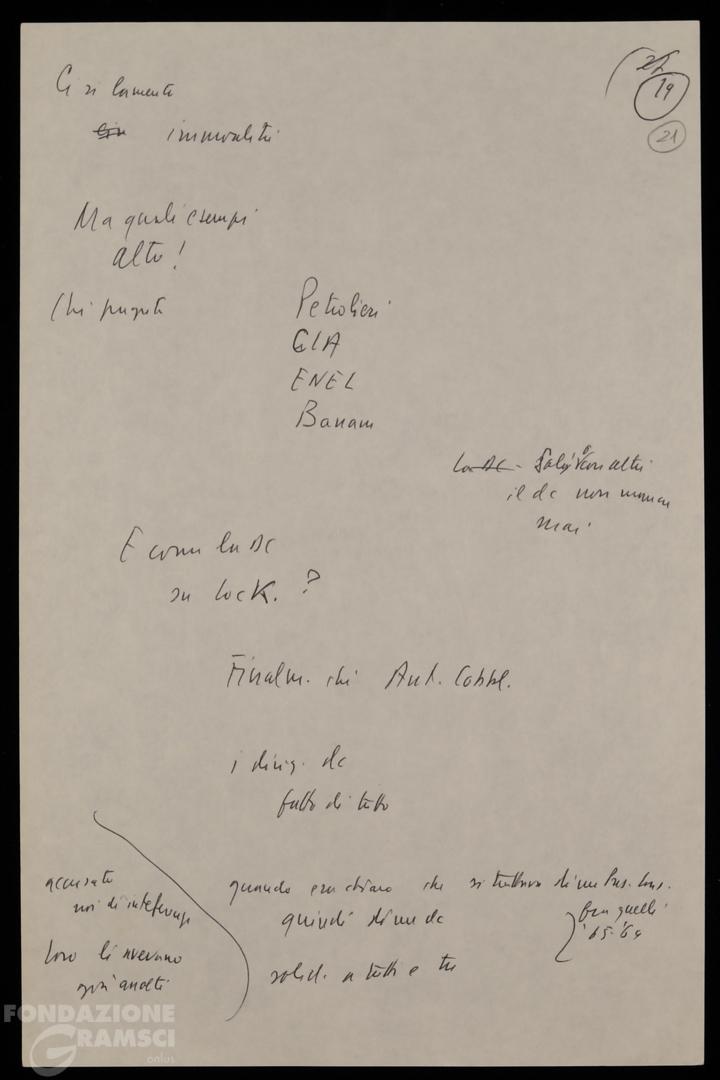 Ci si lamenta
immoralità
19
21
Ma quali esempi
alto!
Chi pagato
Petrolieri
CIA
ENEL
Banane
La DC -
il dc non manca
mai
E come la DC
su Lock. ?
Finalm. chi Ant. Cobbl.
i dirig. dc
fatto di tutto
accusato
noi di
quando era chiaro che si trattava di un Pres. Cons.
quindi di un dc
fra quelli
'65-'69
loro li avevano
già
solid. a tutti e tre
FONDAZIONE
GRAMSCI
onlus